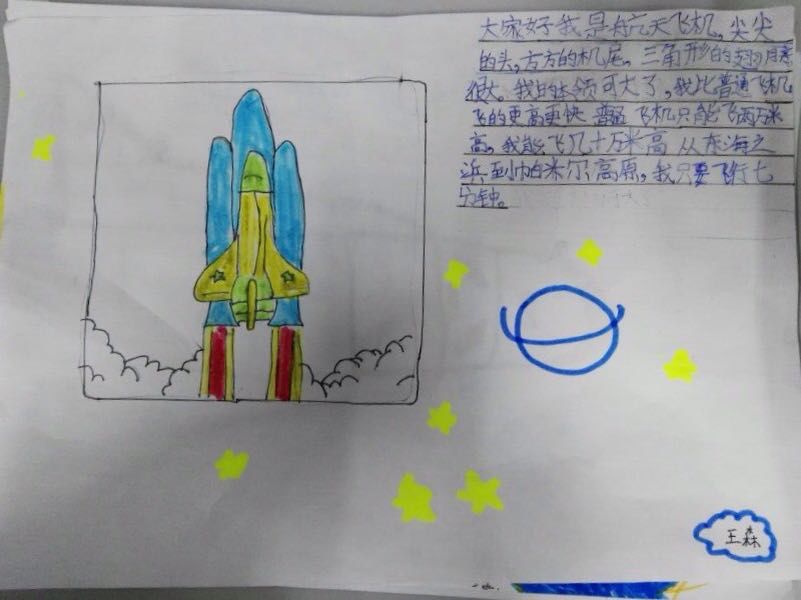 大家好我是航天飞机。尖尖
的头，方方的机尾。三角形的翅膀
很大。我的本领可大了，我比普通飞机
飞的更高更快 普通飞机只能飞两万米
高。我能飞几十万米高 从东海之
滨到帕米尔高原，我只要飞行七
分钟。
王森